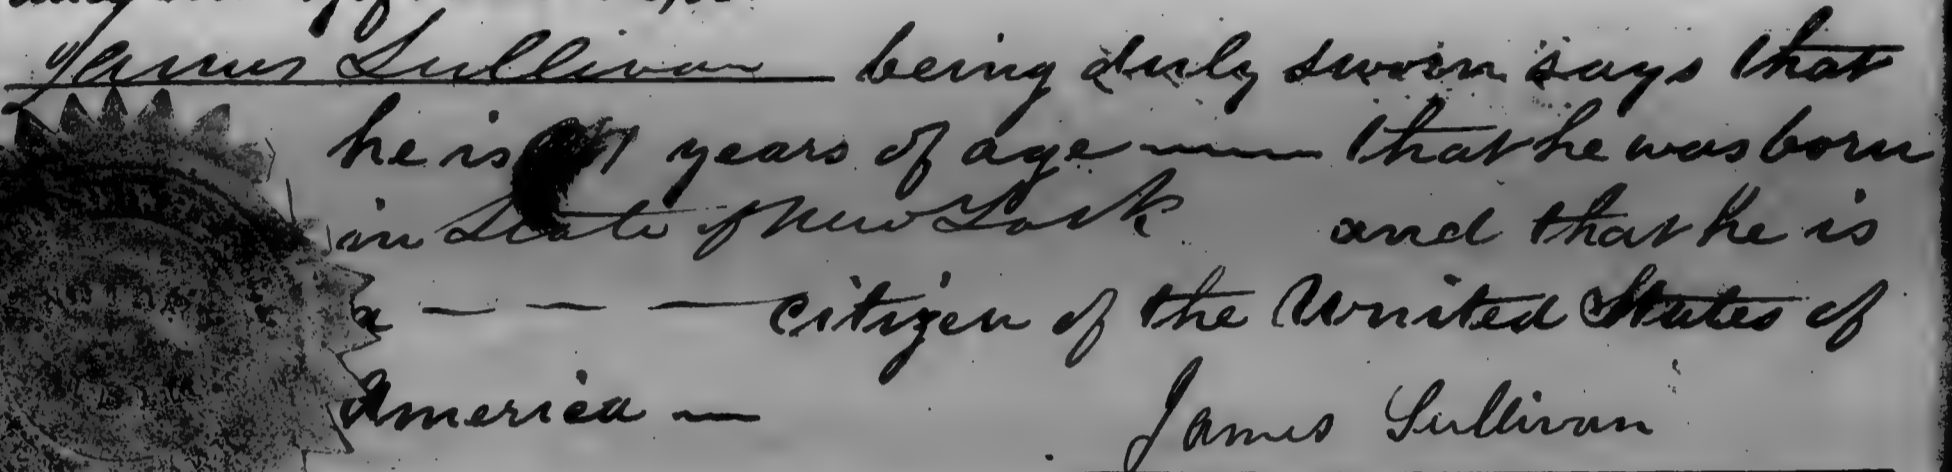 James Sullivan being duly sworn says that
he is years of age — that he was born
in State of New York and that he is
a — — — citizen of the United States of
America —
James Sullivan